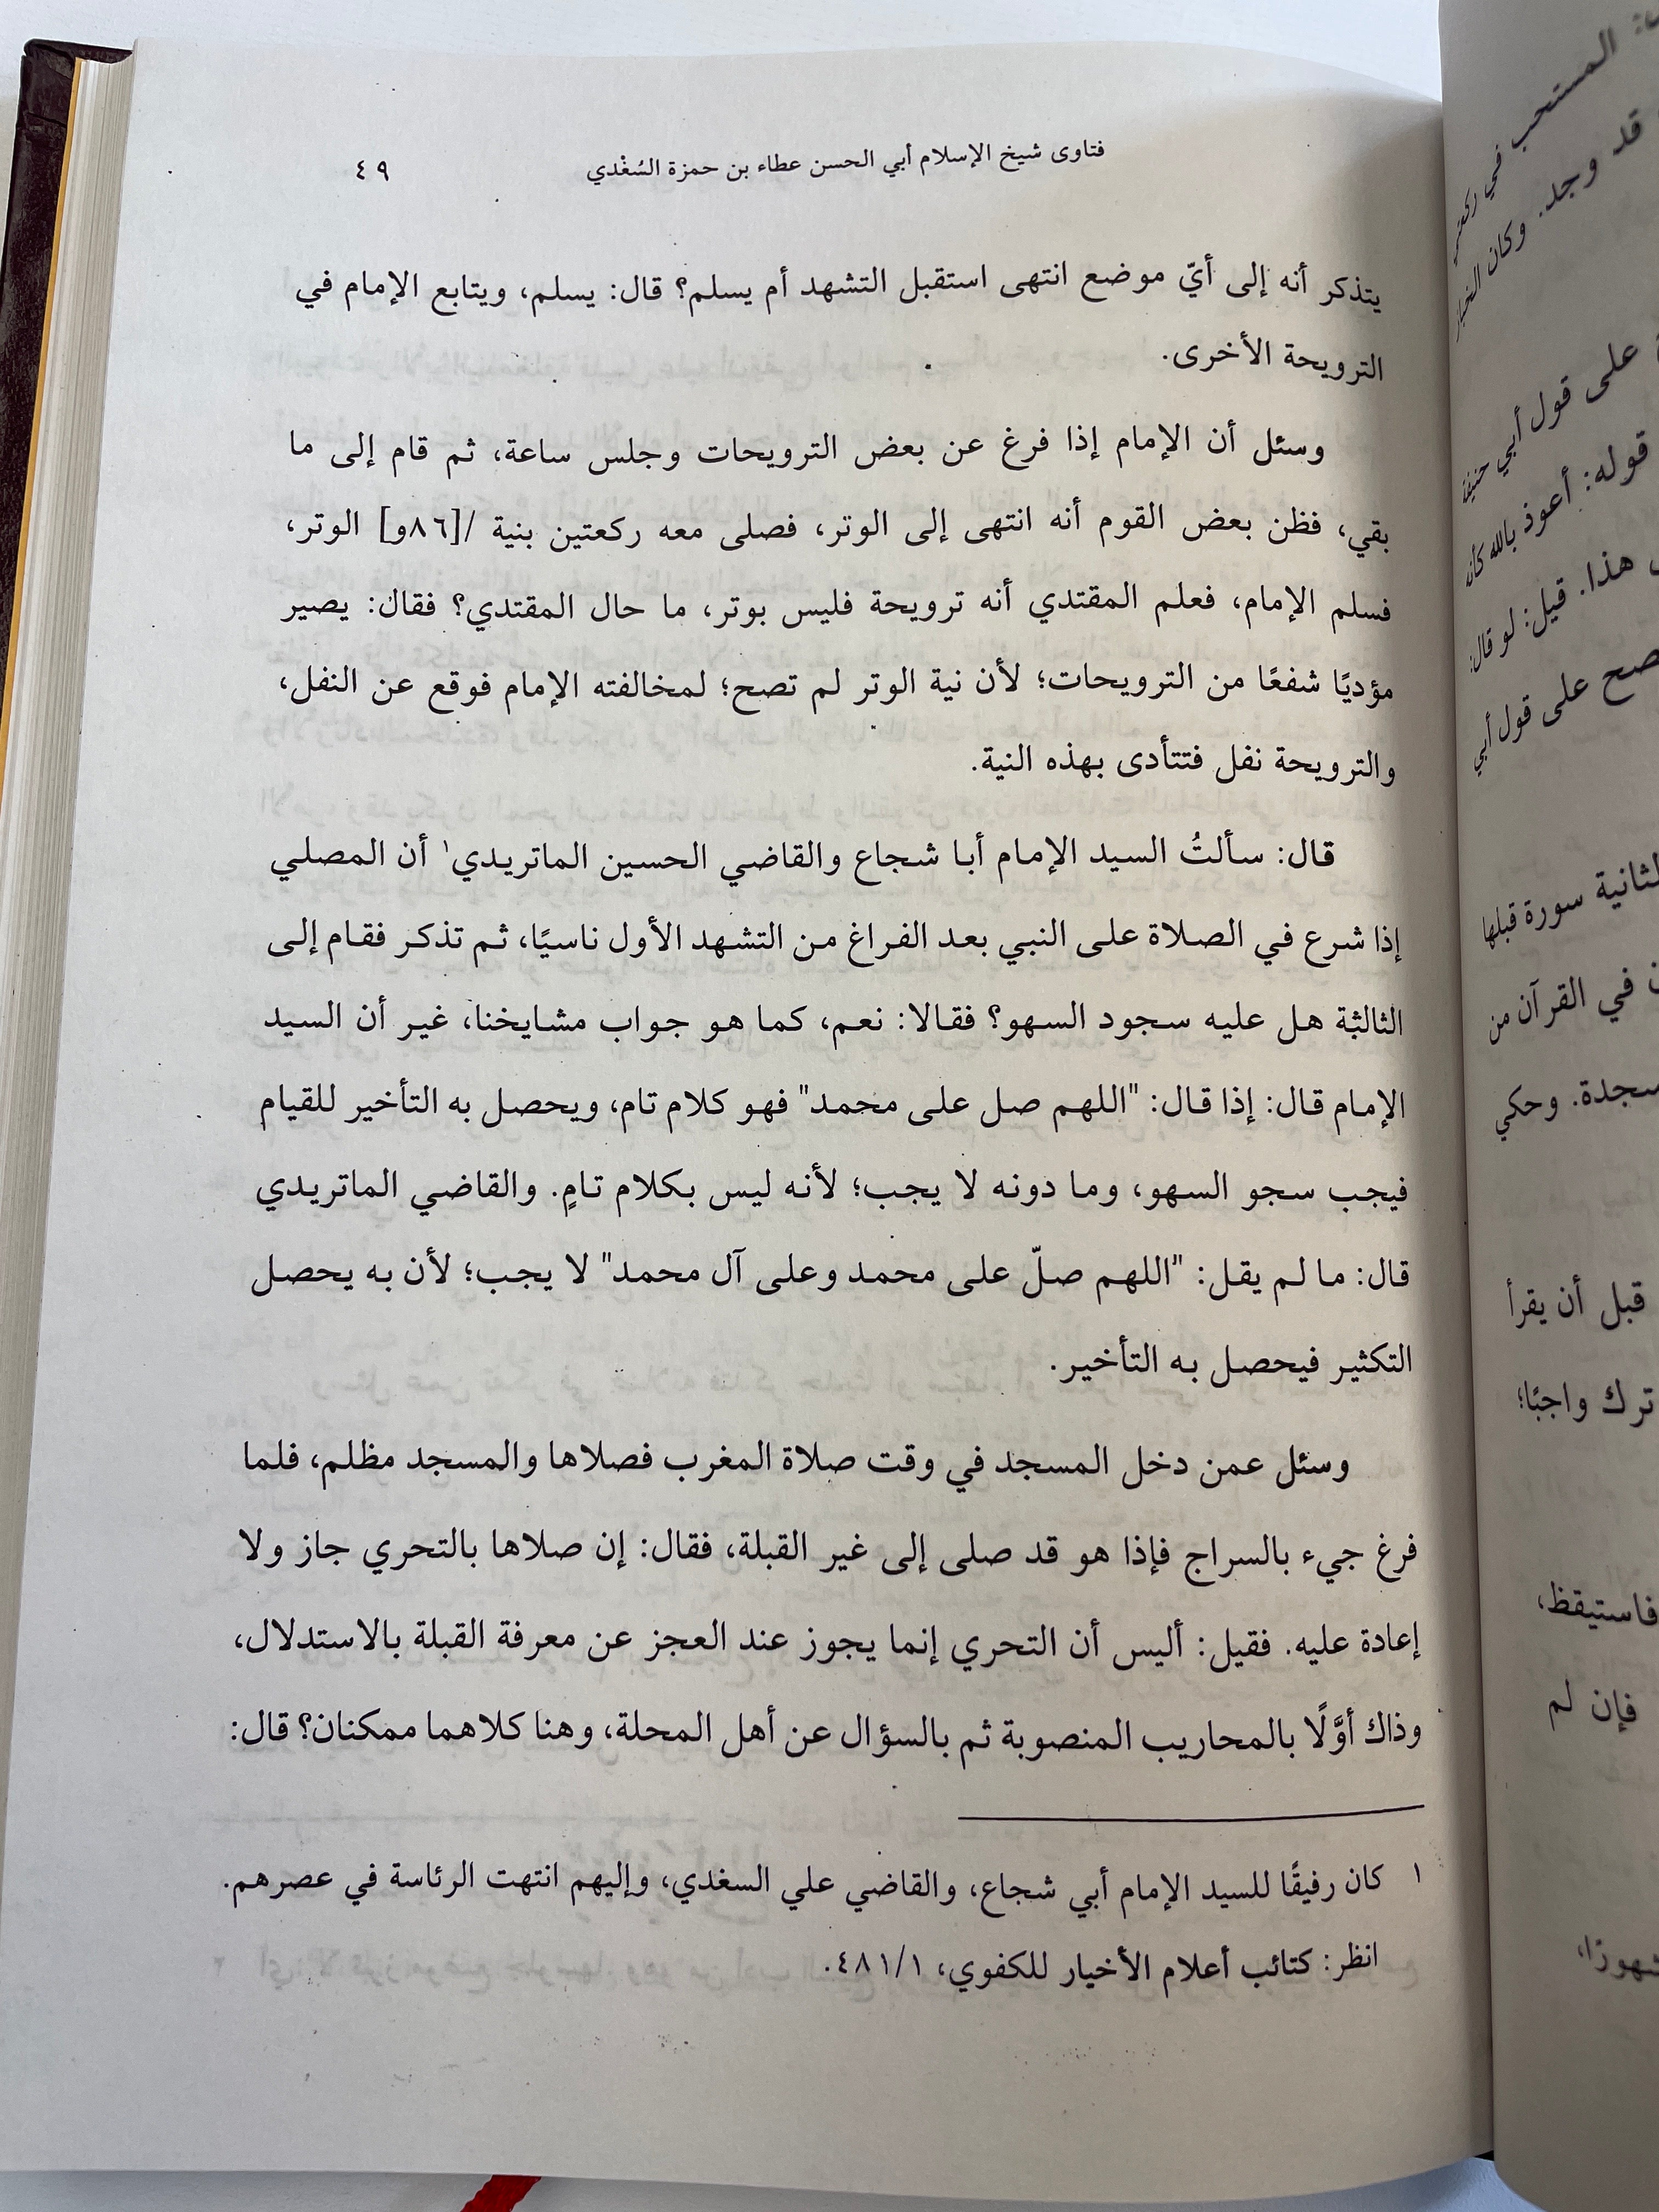 فتاوى شيخ الإسلام أبي الحسن عطاء بن حمزة السُغْدي ٤٩
يتذكر أنه إلى أيّ موضع انتهى استقبل التشهد أم يسلم؟ قال: يسلم، ويتابع الإمام في
الترويحة الأخرى.
وسئل أن الإمام إذا فرغ عن بعض الترويحات وجلس ساعة، ثم قام إلى ما
بقي، فظن بعض القوم أنه انتهى إلى الوتر، فصلى معه ركعتين بنية /[٨٦و] الوتر،
فسلم الإمام، فعلم المقتدي أنه ترويحة فليس بوتر، ما حال المقتدي؟ فقال: يصير
مؤديًا شفعًا من الترويحات؛ لأن نية الوتر لم تصح؛ لمخالفته الإمام فوقع عن النفل،
والترويحة نفل فتتأدى بهذه النية.
قال: سألتُ السيد الإمام أبا شجاع والقاضي الحسين الماتريدي١ أن المصلي
إذا شرع في الصلاة على النبي بعد الفراغ من التشهد الأول ناسيًا، ثم تذكر فقام إلى
الثالثة هل عليه سجود السهو؟ فقالا: نعم، كما هو جواب مشايخنا، غير أن السيد
الإمام قال: إذا قال: "اللهم صل على محمد" فهو كلام تام، ويحصل به التأخير للقيام
فيجب سجو السهو، وما دونه لا يجب؛ لأنه ليس بكلام تامٍ. والقاضي الماتريدي
قال: ما لم يقل: "اللهم صلّ على محمد وعلى آل محمد" لا يجب؛ لأن به يحصل
التكثير فيحصل به التأخير.
وسئل عمن دخل المسجد في وقت صلاة المغرب فصلاها والمسجد مظلم، فلما
فرغ جيء بالسراج فإذا هو قد صلى إلى غير القبلة، فقال: إن صلاها بالتحري جاز ولا
إعادة عليه. فقيل: أليس أن التحري إنما يجوز عند العجز عن معرفة القبلة بالاستدلال،
وذاك أوَّلًا بالمحاريب المنصوبة ثم بالسؤال عن أهل المحلة، وهنا كلاهما ممكنان؟ قال:
١ كان رفيقًا للسيد الإمام أبي شجاع، والقاضي علي السغدي، وإليهم انتهت الرئاسة في عصرهم.
انظر: كتائب أعلام الأخيار للكفوي، ٤٨١/١.
المستحب في
قد وجد. وكان
على قول أبي حنيفة
قوله: أعوذ بالله كان
هذا. قيل: لو قال:
على قول أبي
سورة قبلها
في القرآن من
سجدة. وحكي
قبل أن يقرأ
ترك واجبًا؛
فاستيقظ،
فإن لم